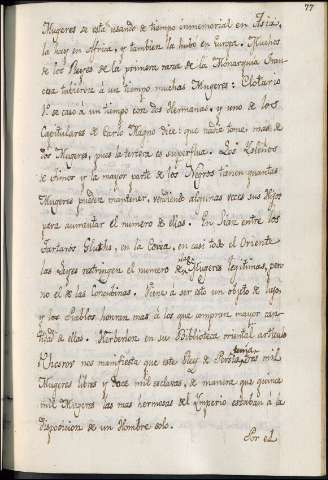 77
Mugeres se está usando de tiempo inmemorial en Asia,
la hay en Africa, y tambien la hubo en Europa. Muchos
de los Reyes de la primera raza de la Monarquia Fran
cesa tubieron á un tiempo muchas Mugeres: Clotario
1º se casó a un tiempo con dos Hermanas, y uno de los
Capitulares de Carlo Magno dice: que nadie tome mas de
dos Mugeres, pues la tercera es superflua. Los Isleños
de Amor y la mayor parte de los Negros tienen quantas
Mugeres pueden mantener, vendiendo algunas veces sus Hijos
para aumentar el numero de ellas. En Sian entre los
Tartaros en la Corea, en casi todo el Oriente
las Leyes restringen el numero de las Mugeres legitimas, pero
no el de las Concubinas. Viene á ser esto un objeto de lujo,
y los Pueblos honran mas á los que compran mayor can-
tidad de ellas. Herbelon en su Bibliotheca oriental articulo
Khesroes nos manifiesta que este Rey de Persia tenia tres mil
Mugeres libres y doce mil esclavas, de manera que quince
mil Mugeres las mas hermosas del Imperio estaban á la
disposicion de un Hombre solo.
Por el